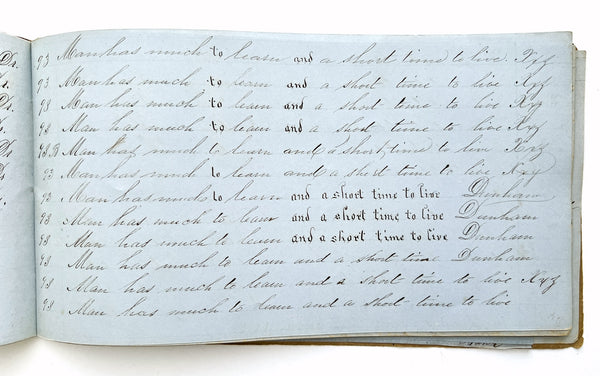 93 Man has much to learn and a short time to live Xyz
93 Man has much to learn and a short time to live Xyz
98 Man has much to learn and a short time to live Xyz
98 Man has much to learn and a short time to live Xyz
98 B Man has much to learn and a short time to live Xyz
93 Man has much to learn and a short time to live Xyz
93 Man has much to learn and a short time to live Dunham
98 Man has much to learn and a short time to live Dunham
98 Man has much to learn and a short time to live Dunham
98 Man has much to learn and a short time Dunham
98 Man has much to learn and a short time to live Xyz
98 Man has much to learn and a short time to live